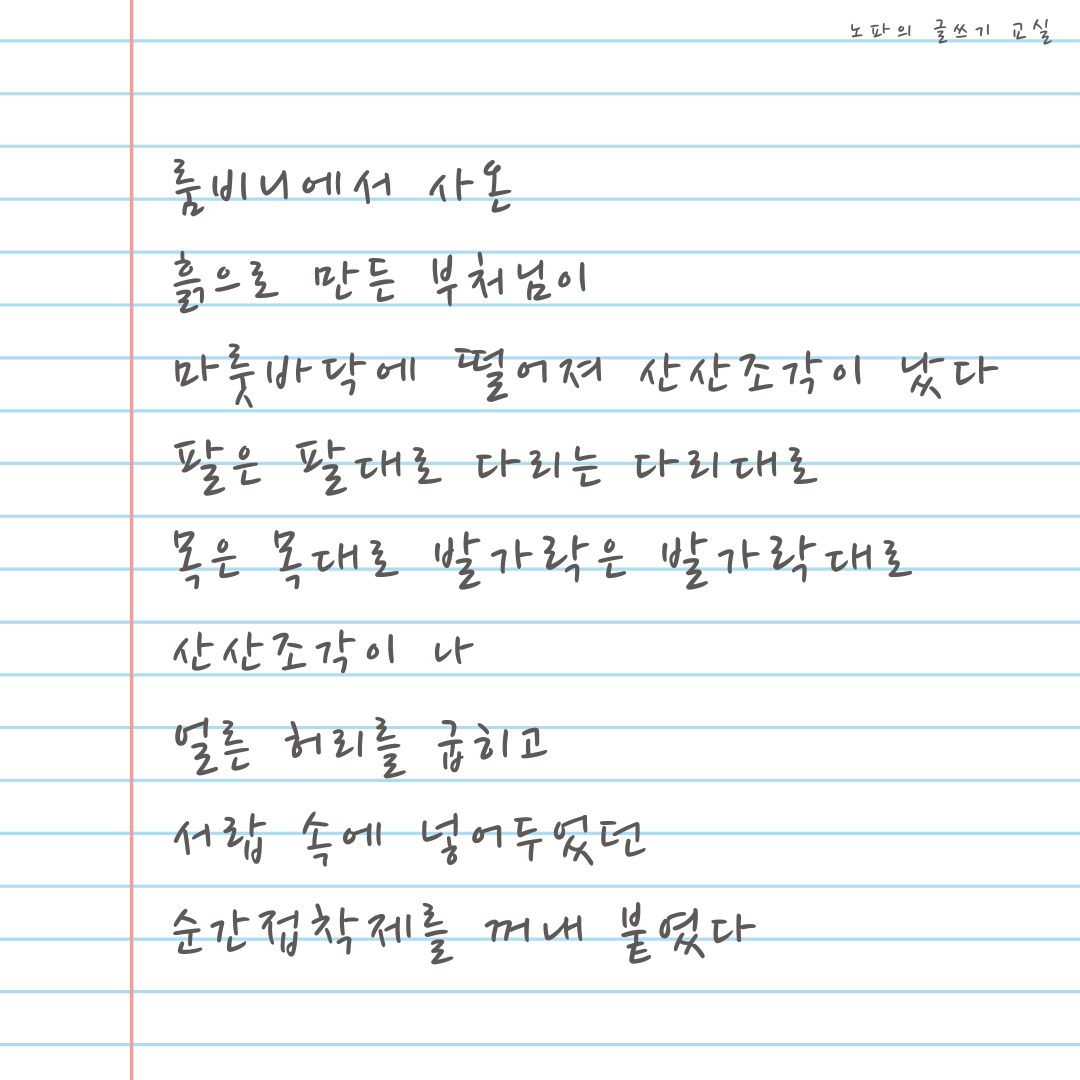 노파의 글쓰기 교실
룸비니에서 사온
흙으로 만든 부처님이
마룻바닥에 떨어져 산산조각이 났다
팔은 팔대로 다리는 다리대로
목은 목대로 발가락은 발가락대로
산산조각이 나
얼른 허리를 굽히고
서랍 속에 넣어두었던
순간접착제를 꺼내 붙였다